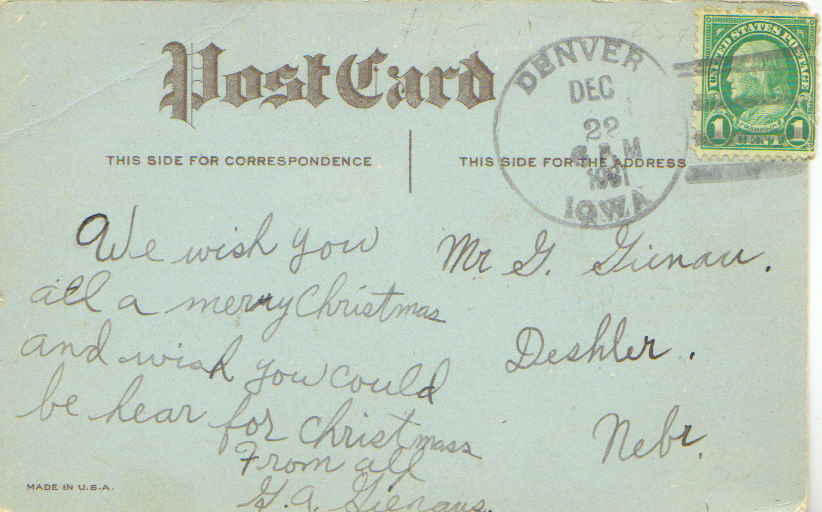 Post Card
THIS SIDE FOR CORRESPONDENCE
THIS SIDE FOR THE ADDRESS
DENVER
DEC
22
A.M
1931
IOWA
UNITED STATES POSTAGE
1 CENT 1
We wish you
all a merry Christmas
and wish you could
be hear for christmass
From all
G.A. Gienaus.
Mr G. Gienau.
Deshler.
Nebr.
MADE IN U.S.A.